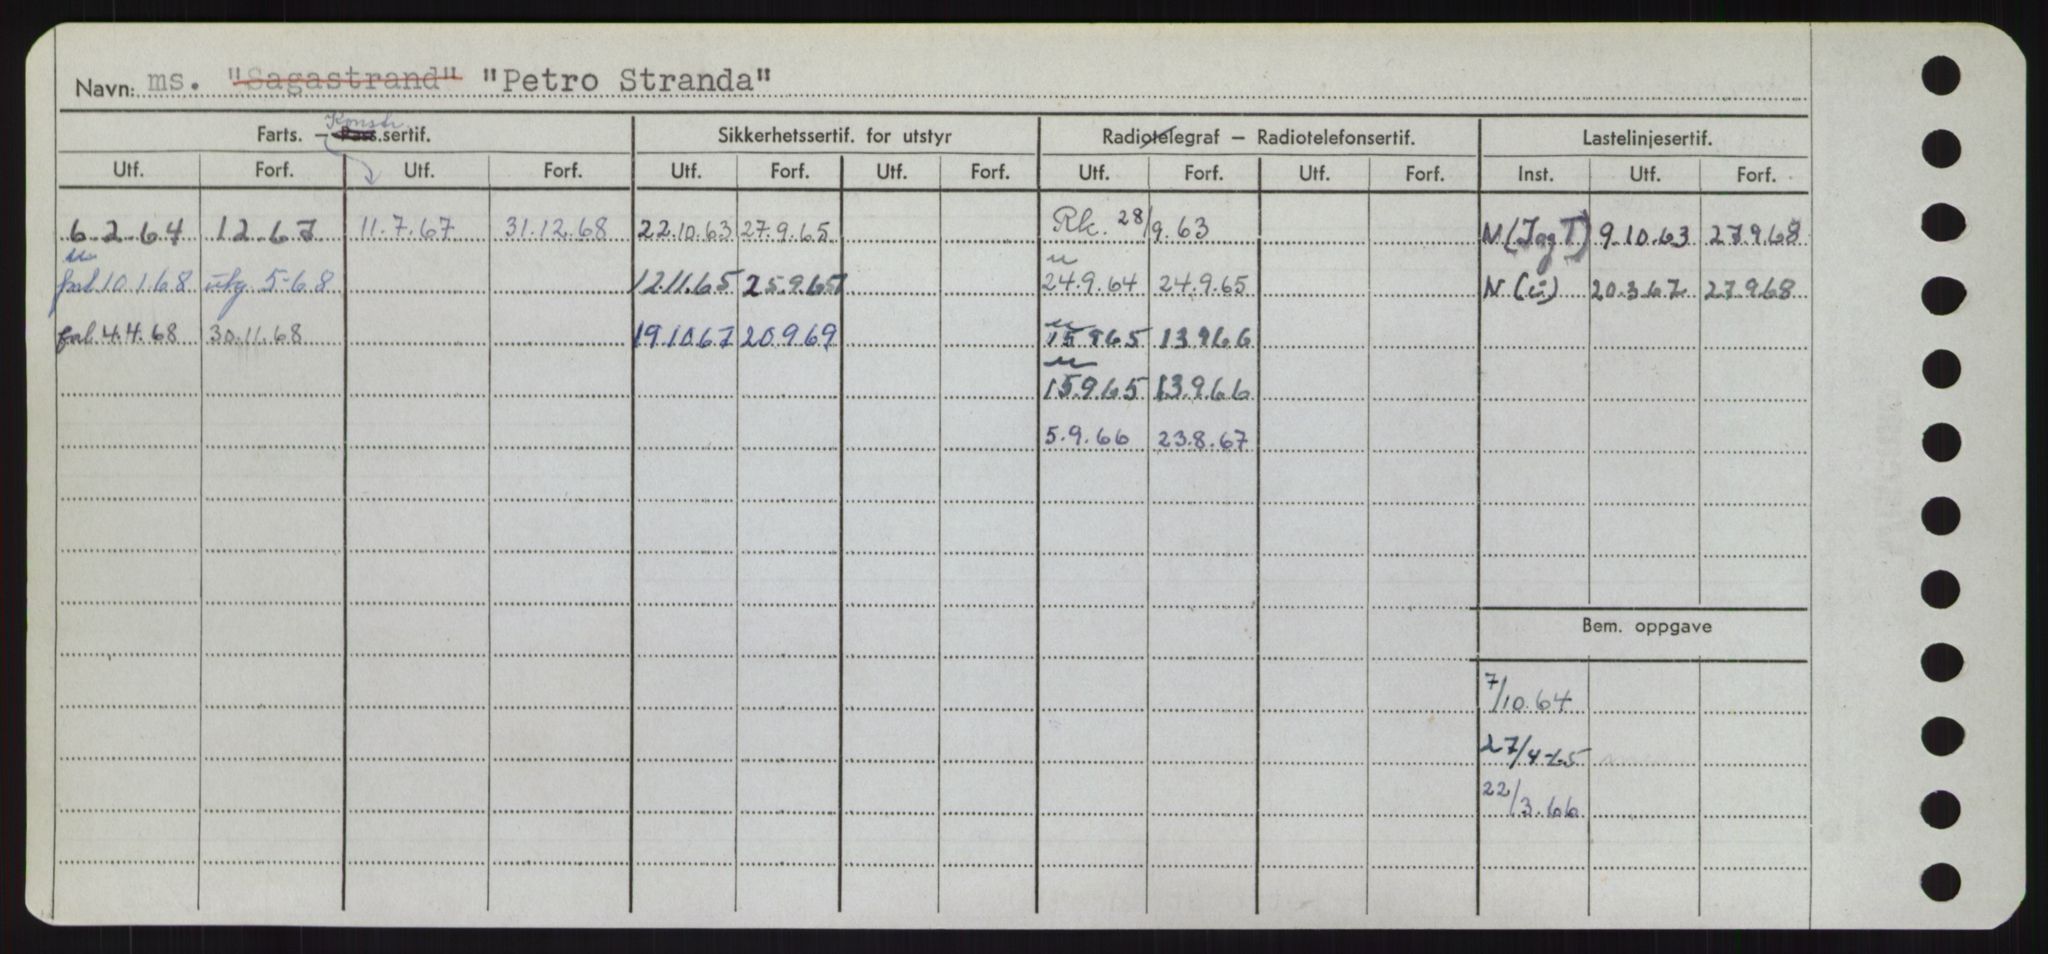 Navn: ms. "Sagastrand" "Petro Stranda"
Konstr.
Farts. — Pass.sertif. Sikkerhetssertif. for utstyr Radiotelegraf — Radiotelefonsertif. Lastelinjesertif.
Utf. Forf. Utf. Forf. Utf. Forf. Utf. Forf. Utf. Forf. Utf. Forf. Inst. Utf. Forf.
6.2.64 12.67 11.7.67 31.12.68 22.10.63 27.9.65 Rk. 28/9.63 N (I og T) 9.10.63 27.9.68
frl 10.1.68 utg 5-68 12.11.65 25.9.67 24.9.64 24.9.65 N (i) 20.3.67 27.9.68
frl 4.4.68 30.11.68 19.10.67 20.9.69 15.9.65 13.9.66
15.9.65 13.9.66
5.9.66 23.8.67
Bem. oppgave
7/10.64
27/4-65
22/3.66